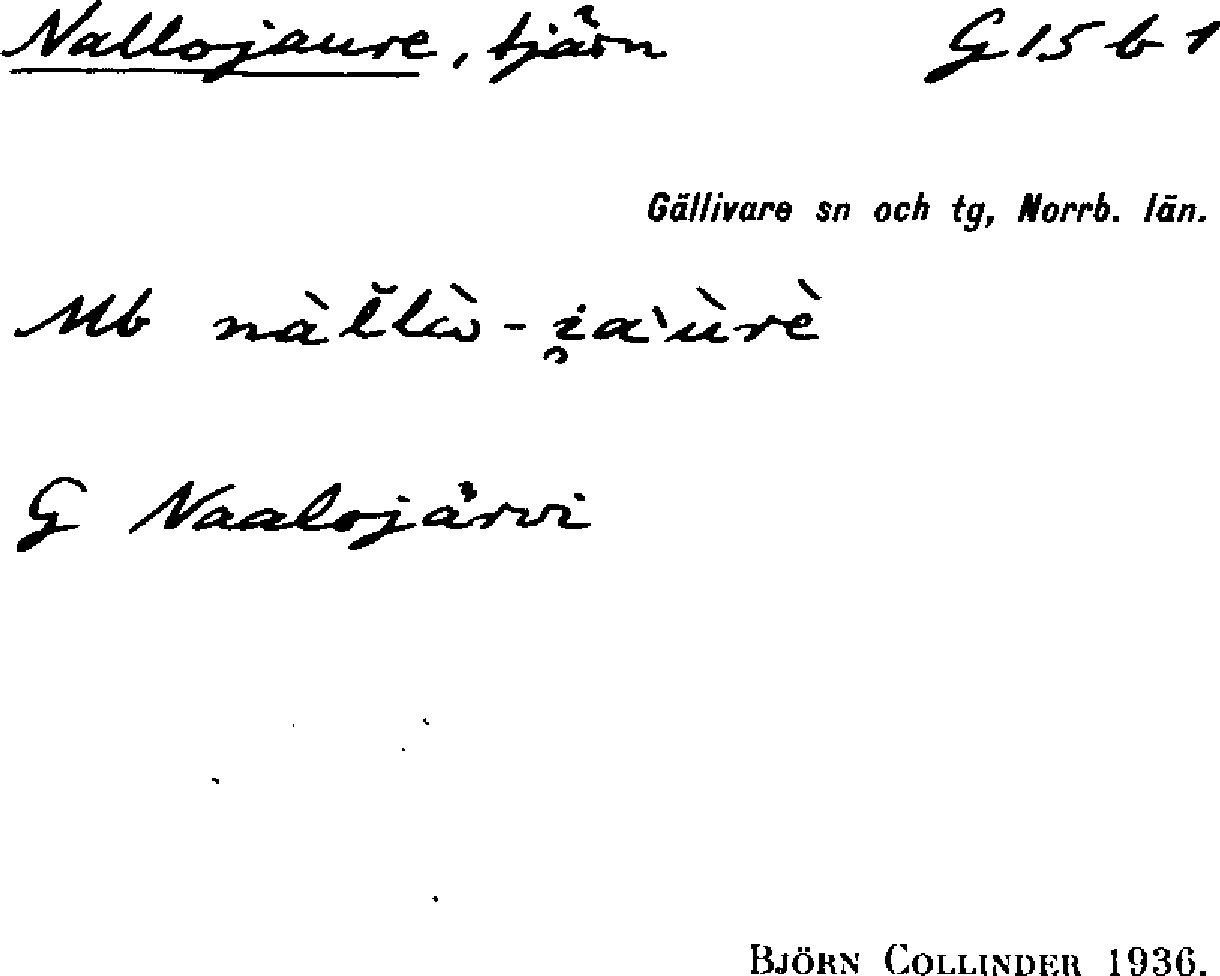 Nallojaure, tjärn G 15 b 1
Gällivare sn och tg, Norrb. län.
Mb nàl̆lɷ̀-i̯a'ùrè
G Naalojärvi
BJÖRN COLLINDER 1936.